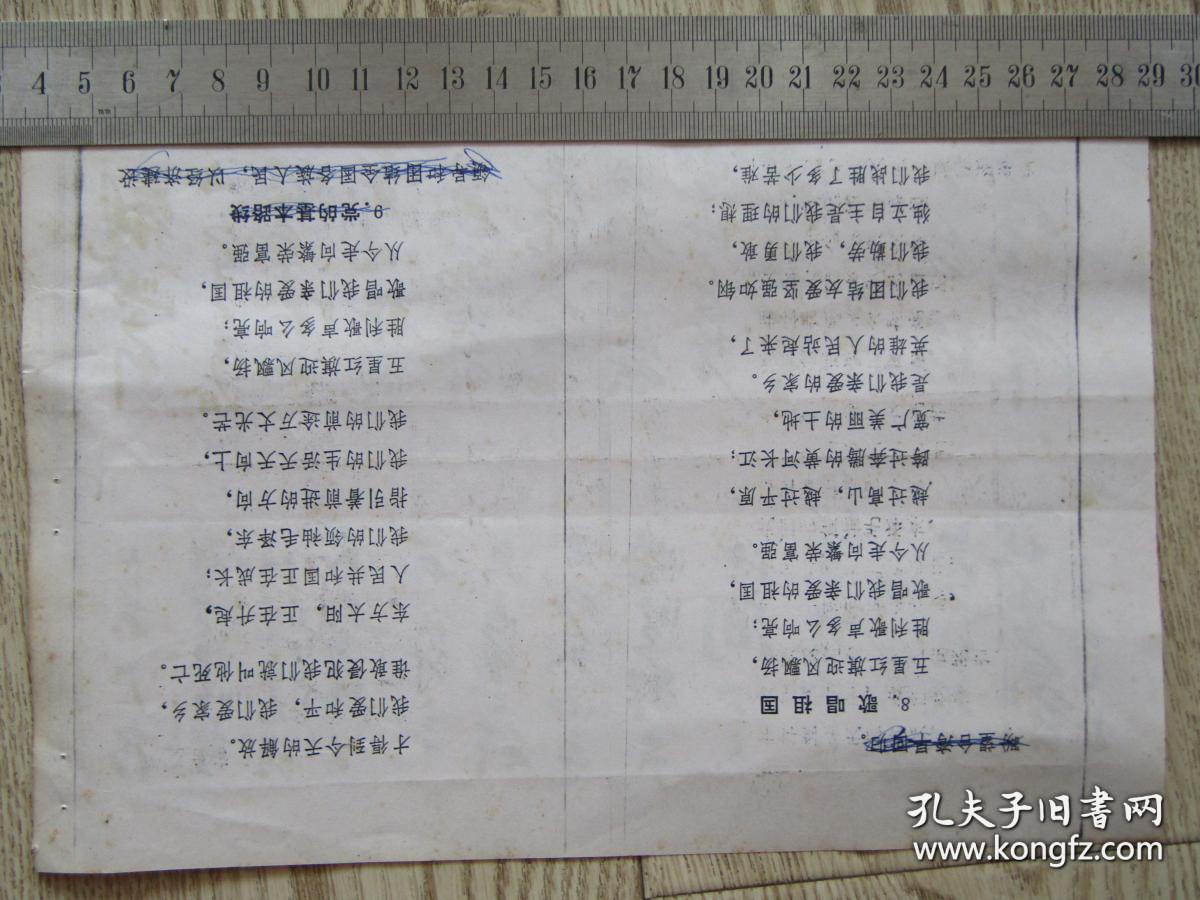 3 4 5 6 7 8 9 10 11 12 13 14 15 16 17 18 19 20 21 22 23 24 25 26 27 28 29 30
盼望台湾早回归。
8. 歌唱祖国
五星红旗迎风飘扬,
胜利歌声多么响亮;
歌唱我们亲爱的祖国,
从今走向繁荣富强。
越过高山,越过平原,
跨过奔腾的黄河长江;
宽广美丽的土地,
是我们亲爱的家乡。
英雄的人民站起来了,
我们团结友爱坚强如钢。
我们勤劳,我们勇敢,
独立自主是我们的理想;
我们战胜了多少苦难,
才得到今天的解放。
我们爱和平,我们爱家乡,
谁敢侵犯我们就叫他死亡。
东方太阳,正在升起,
人民共和国正在成长;
我们的领袖毛泽东,
指引着前进的方向,
我们的生活天天向上,
我们的前途万丈光芒。
五星红旗迎风飘扬,
胜利歌声多么响亮;
歌唱我们亲爱的祖国,
从今走向繁荣富强。
9.党的基本路线
领导和团结全国各族人民,以经济建设
孔夫子旧书网
www.kongfz.com